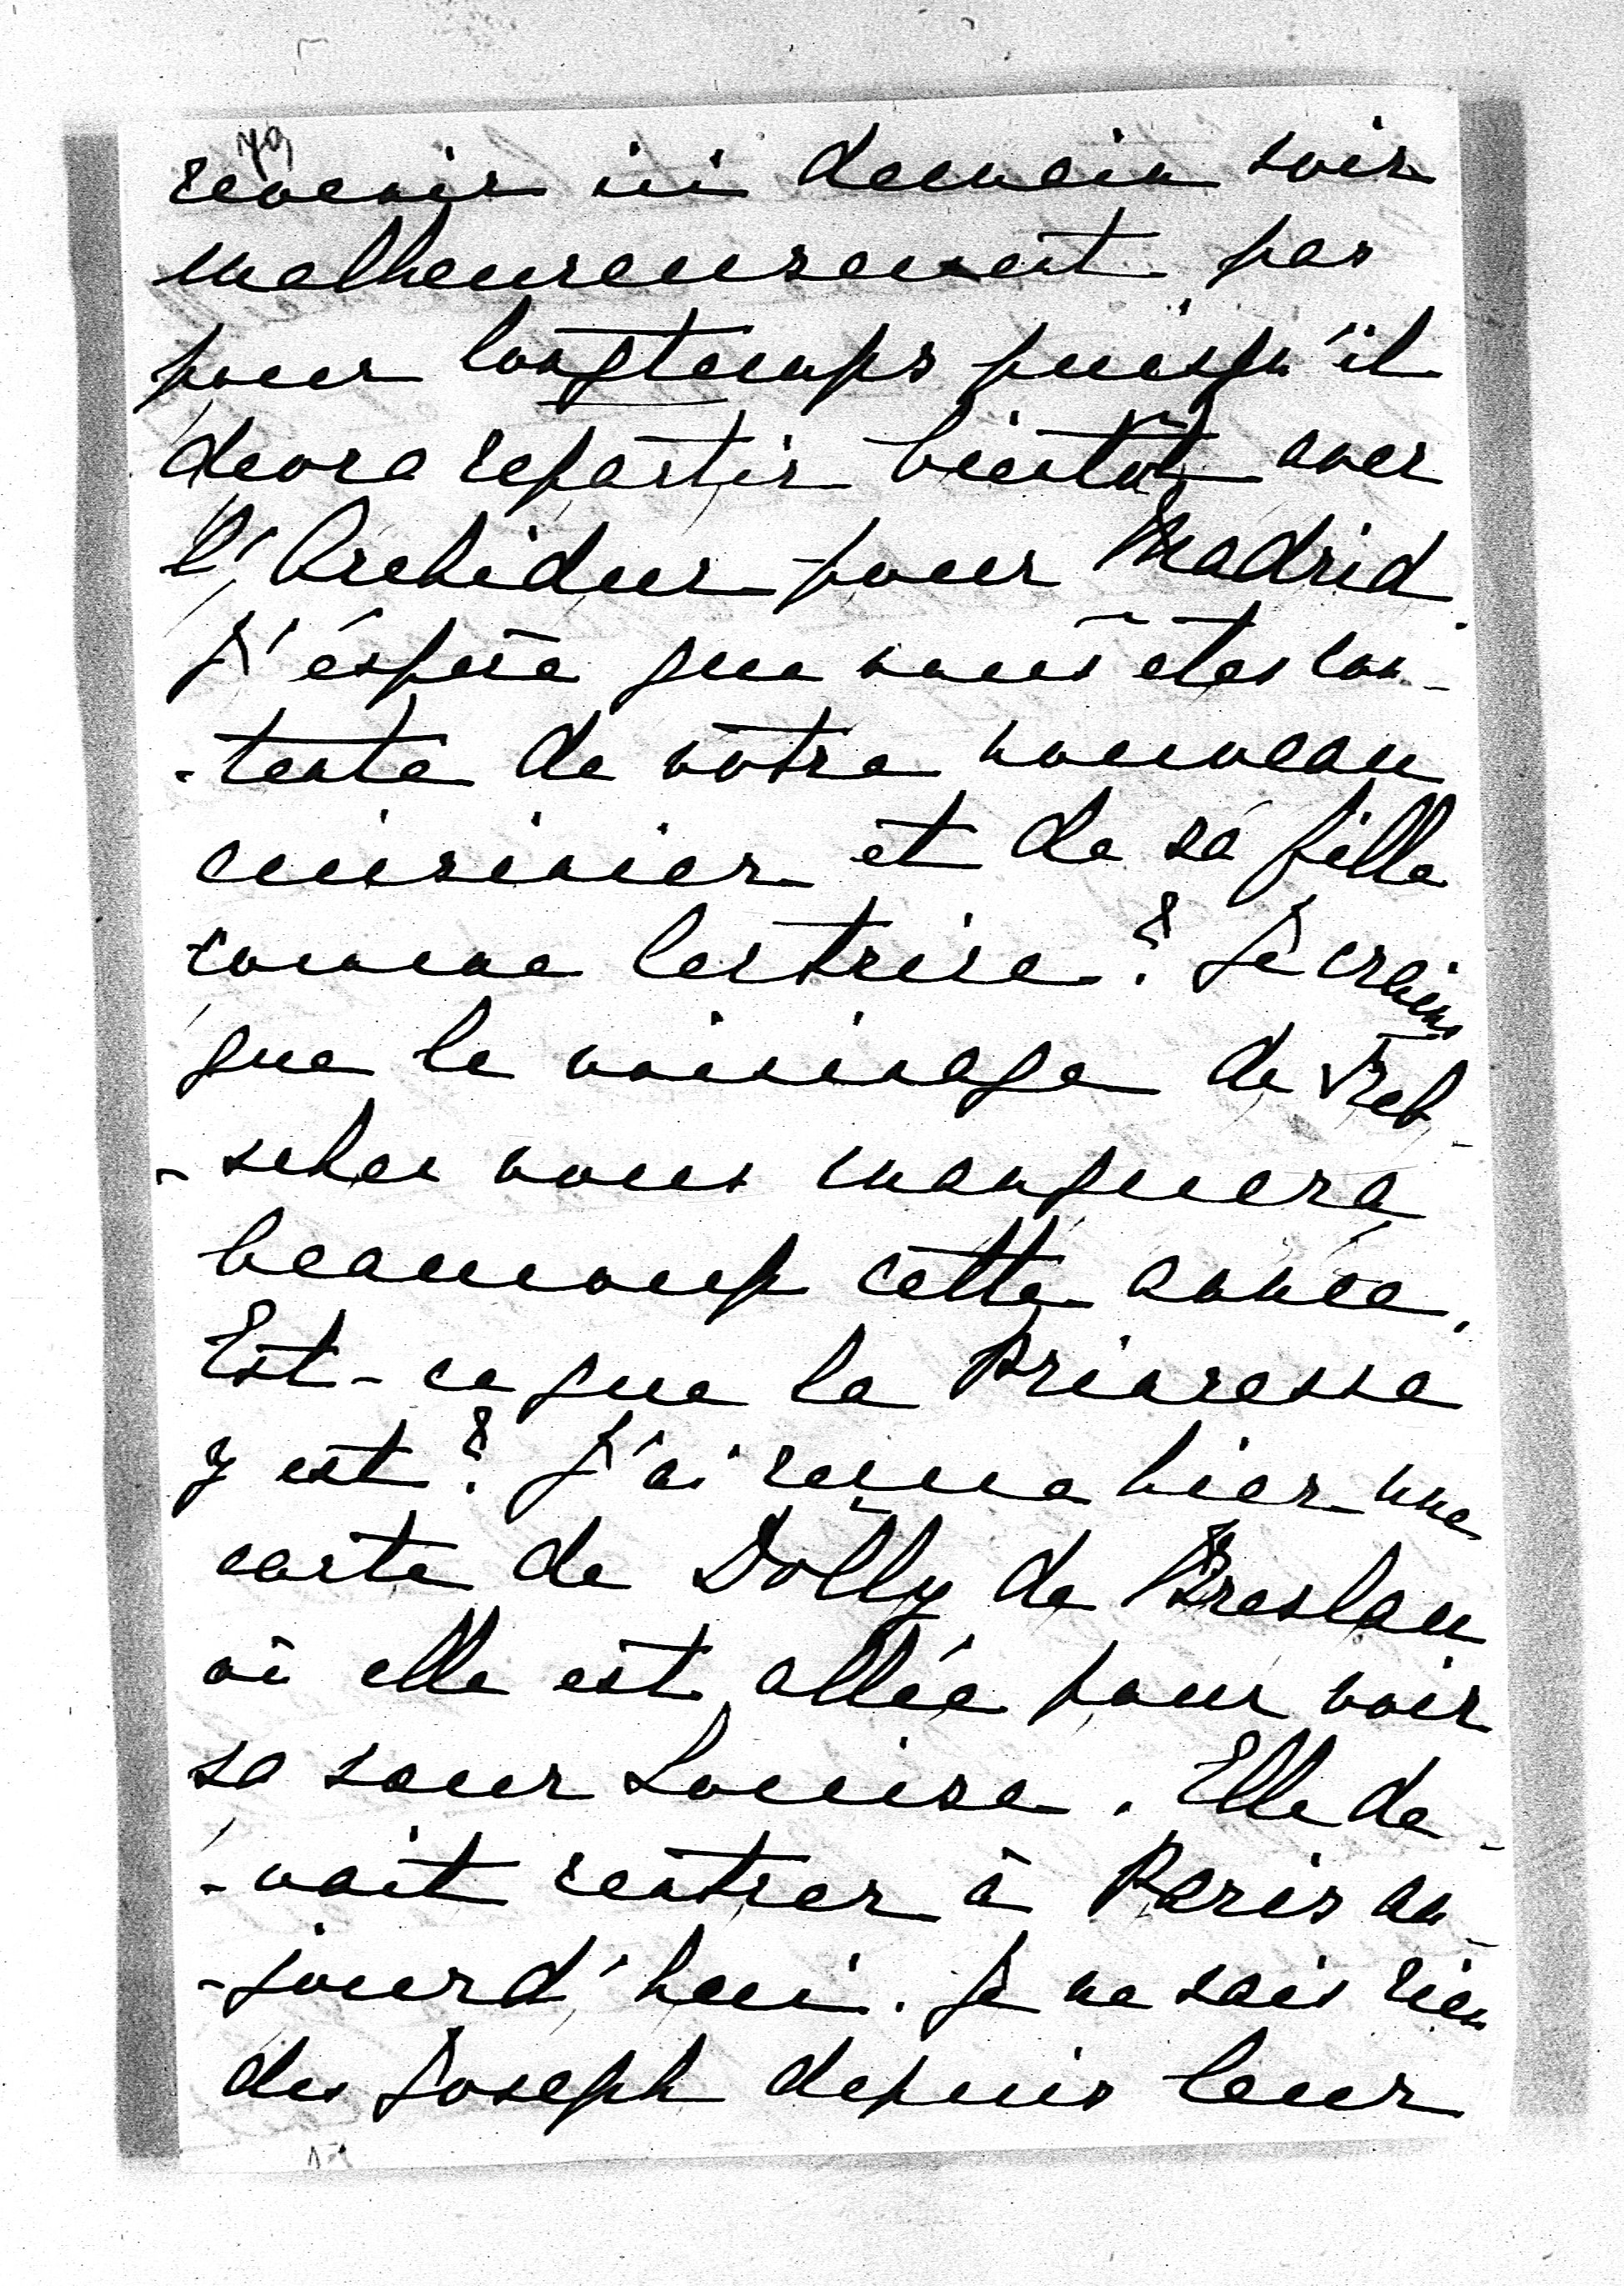 79
revenir ici demain soir
malheureusement pas
pour longtemps puisqu'il
devra repartir bientôt avec
l'Archiduc pour Madrid.
J'éspère que vous êtes con-
-tente de vôtre nouveau
cuisinier et de sa fille
comme lectrice? Je crains
que le voisinage de Tret-
-schen vous manquera
beaucoup cette année.
Est-ce que la Princesse
y est? J'ai reçue hier une
carte de Dolly de Breslau
où elle est allée pour voir
sa sœur Louise. Elle de-
-vait rentrer à Paris au-
-jourd'hui. Je ne sais rien
des Joseph depuis leur